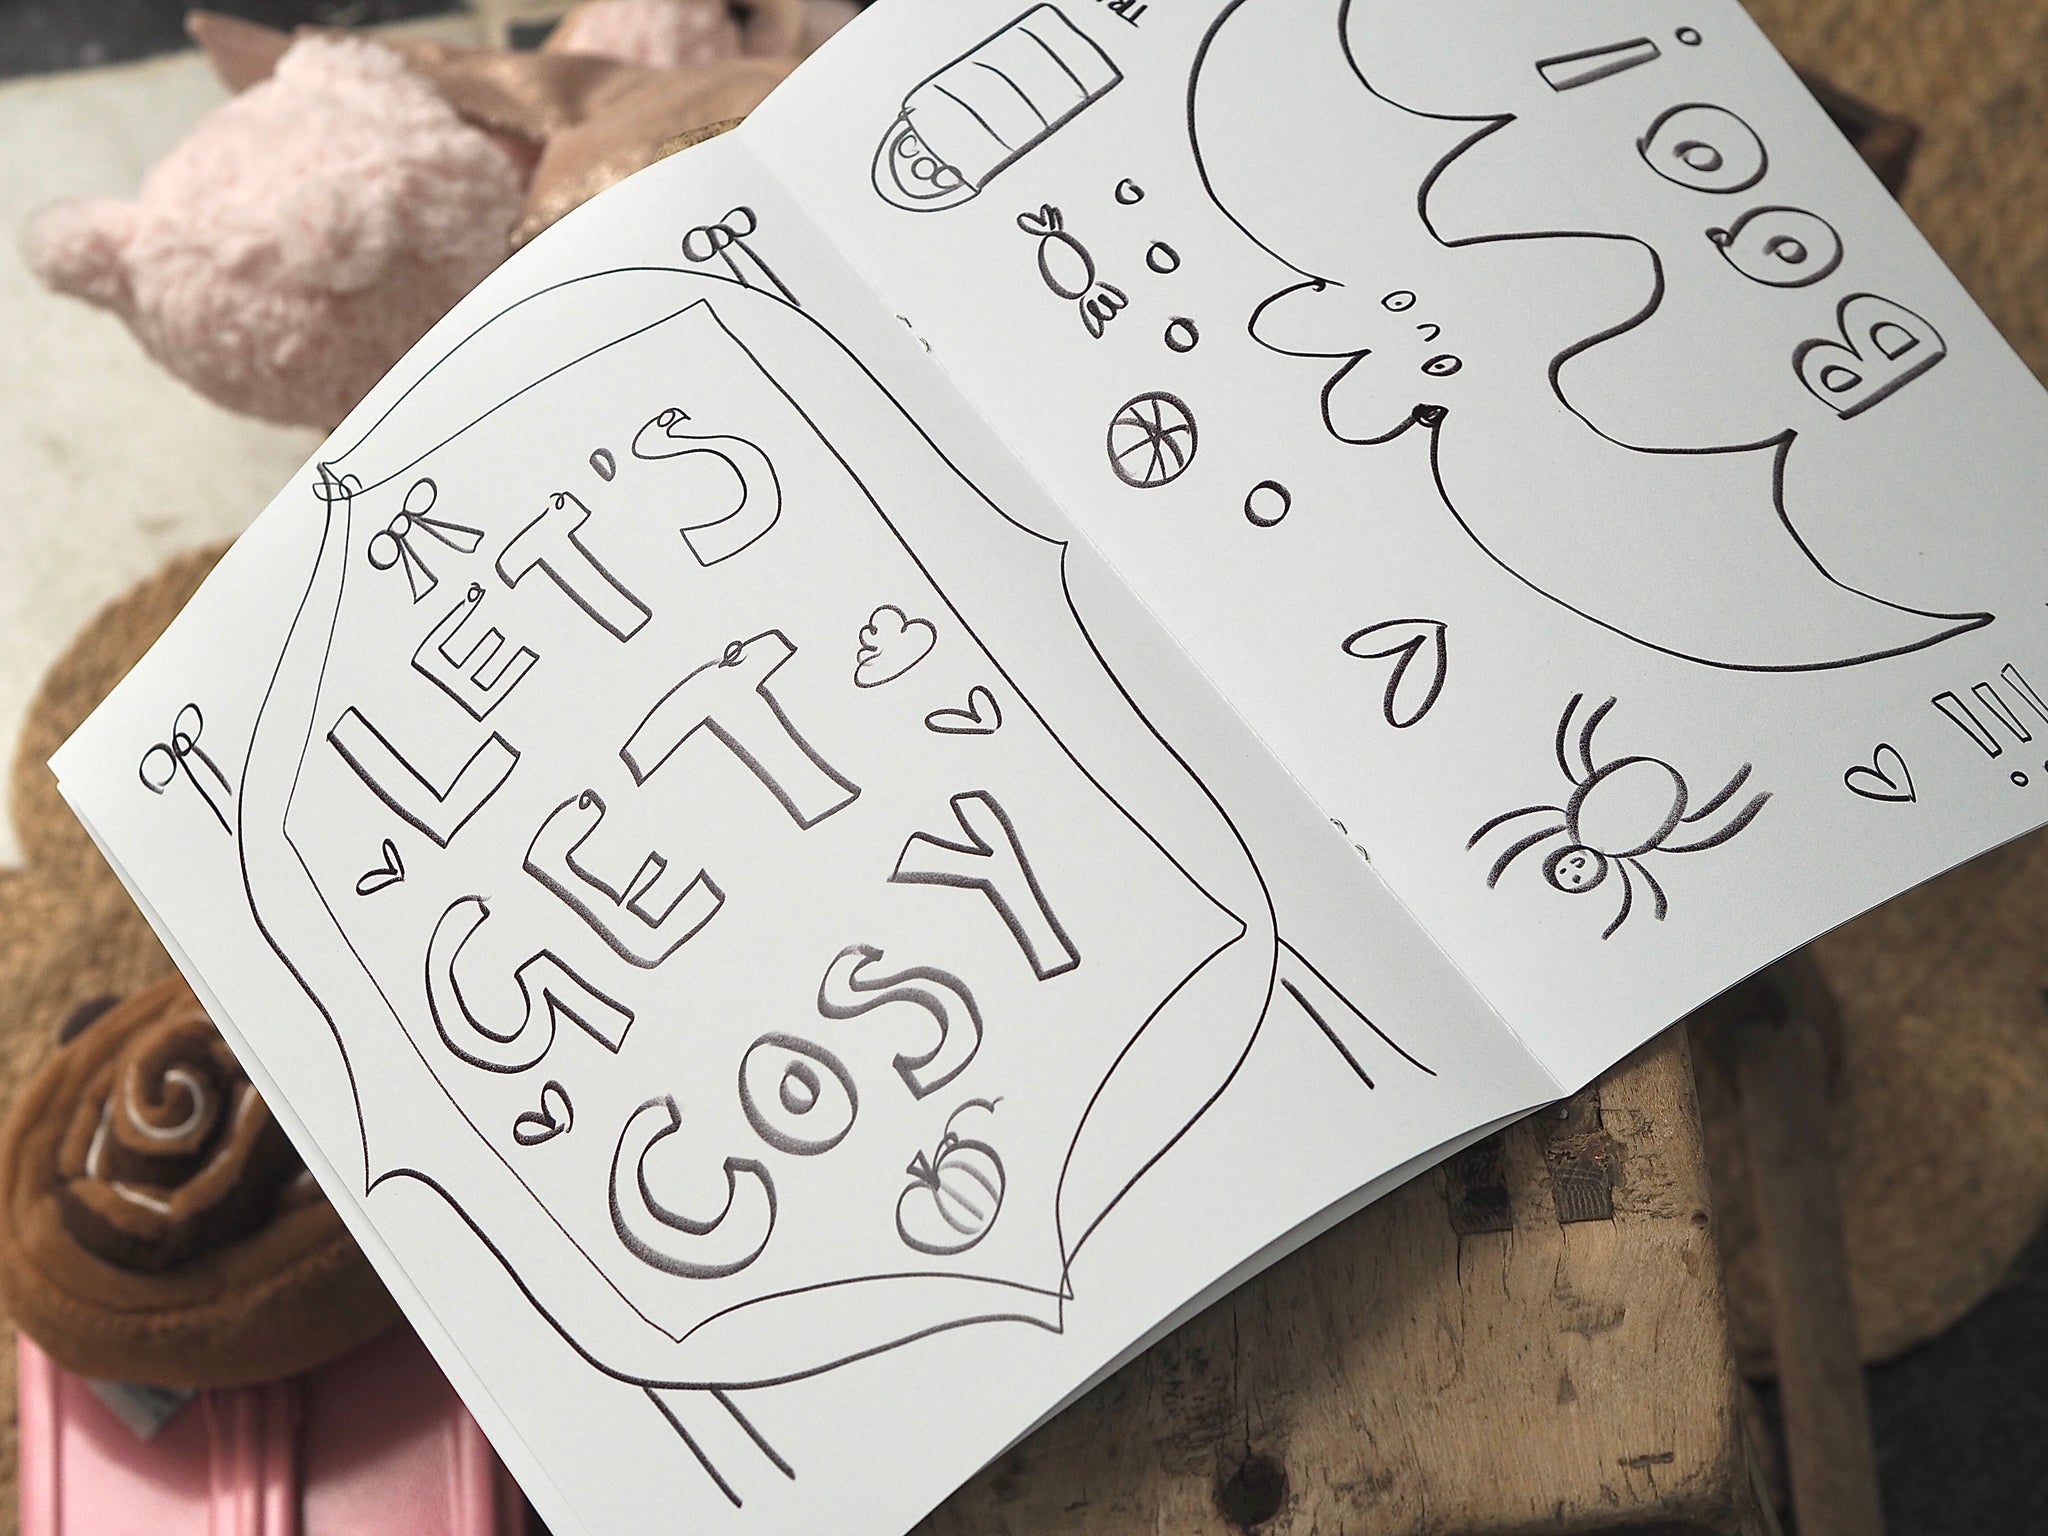 LET'S
GET
COSY
BOO!
!!!